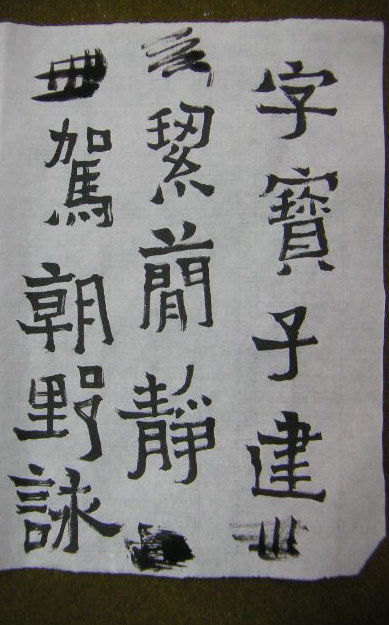 字寶子建
絜簡靜
駕朝野詠